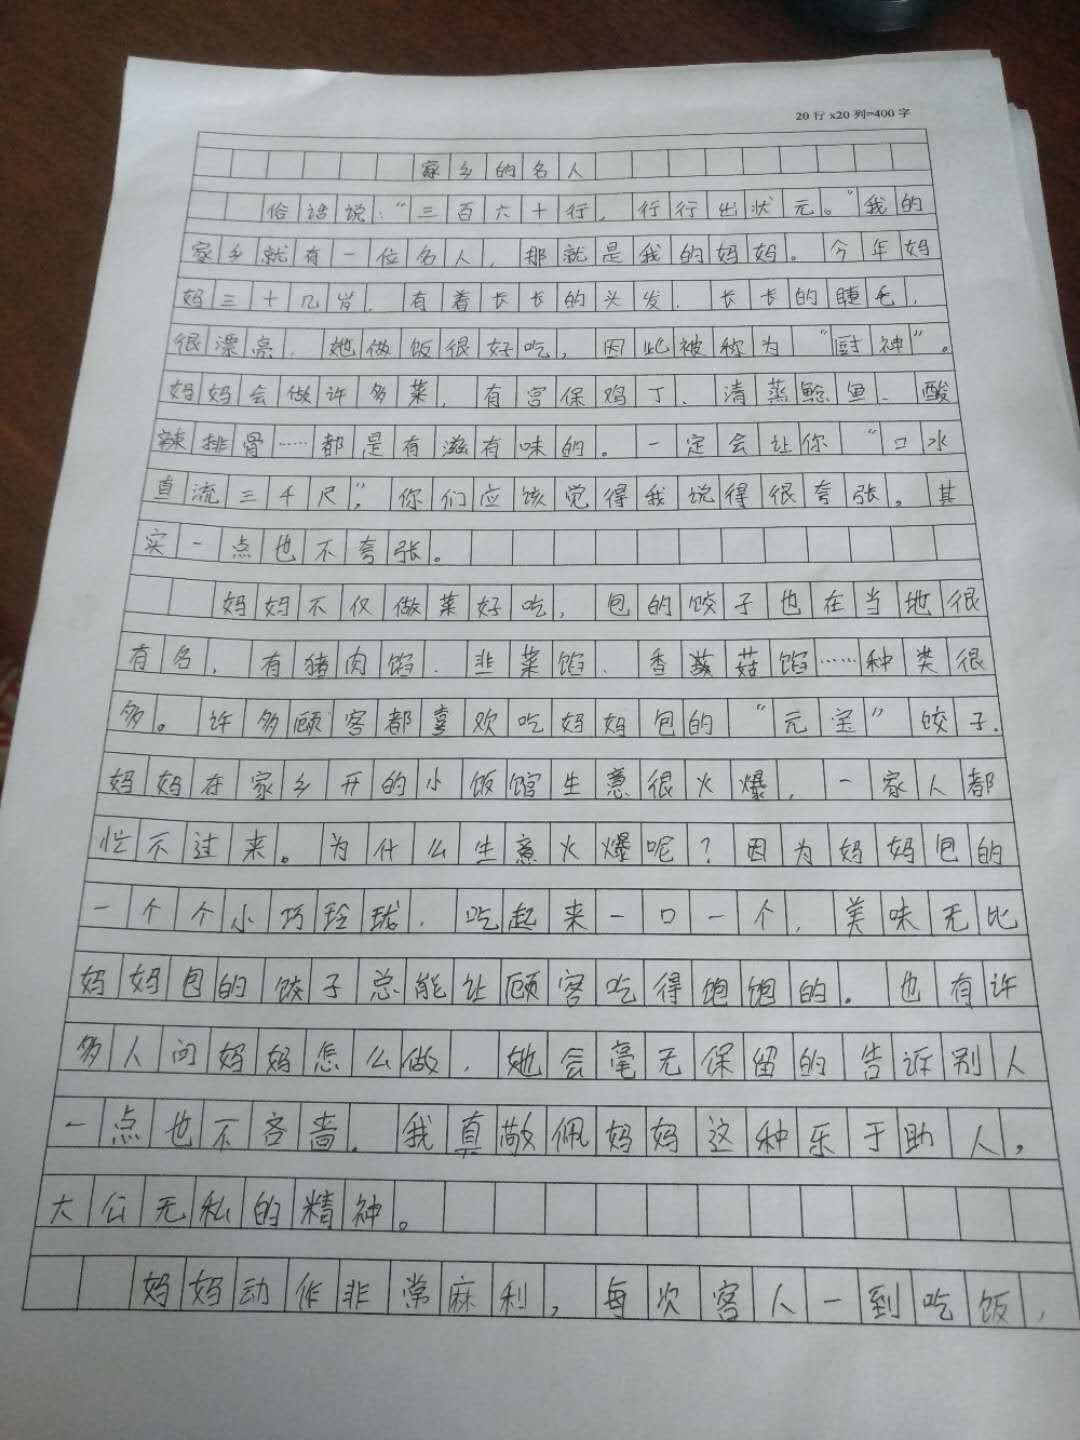 20行x20列=400字
家乡的名人
俗话说:“三百六十行,行行出状元。”我的
家乡就有一位名人,那就是我的妈妈。今年妈
妈三十几岁,有着长长的头发、长长的睫毛,
很漂亮,她做饭很好吃,因此被称为“厨神”。
妈妈会做许多菜,有宫保鸡丁、清蒸鲶鱼、酸
辣排骨……都是有滋有味的。一定会让你“口水
直流三千尺”,你们应该觉得我说得很夸张。其
实一点也不夸张。
妈妈不仅做菜好吃,包的饺子也在当地很
有名,有猪肉馅、韭菜馅、香菇馅……种类很
多。许多顾客都喜欢吃妈妈包的“元宝”饺子.
妈妈在家乡开的小饭馆生意很火爆,一家人都
忙不过来。为什么生意火爆呢?因为妈妈包的
一个个小巧玲珑,吃起来一口一个,美味无比
妈妈包的饺子总能让顾客吃得饱饱的。也有许
多人问妈妈怎么做,她会毫无保留的告诉别人
一点也不吝啬,我真敬佩妈妈这种乐于助人,
大公无私的精神。
妈妈动作非常麻利,每次客人一到吃饭,